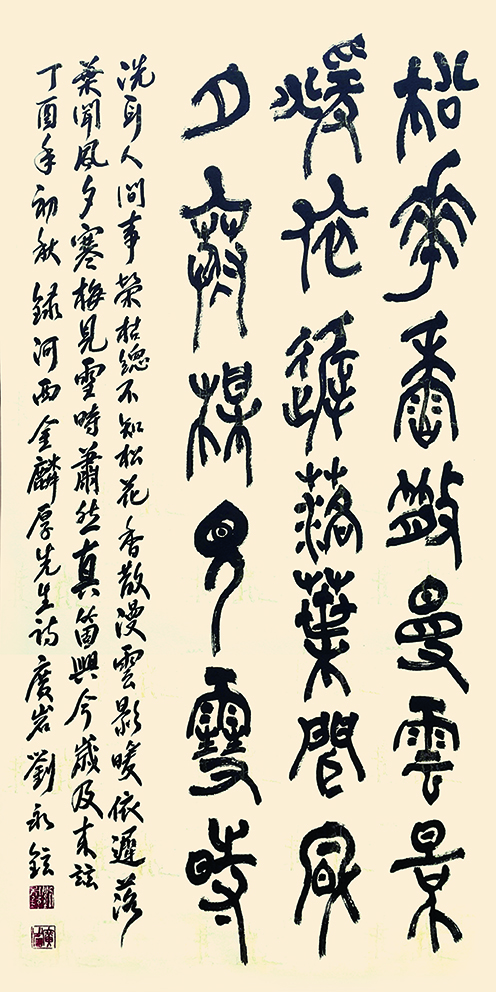 松花香散曼雲景
煖依遲落葉聞風
夕寒楳見雪時
洗耳人間事榮枯緫不知松花香散漫雲影暖依遲落
葉聞風夕寒梅見雪時蕭然真箇興今歲及来茲
丁酉年初秋録河西金麟厚先生詩 廣岩 劉永鉉